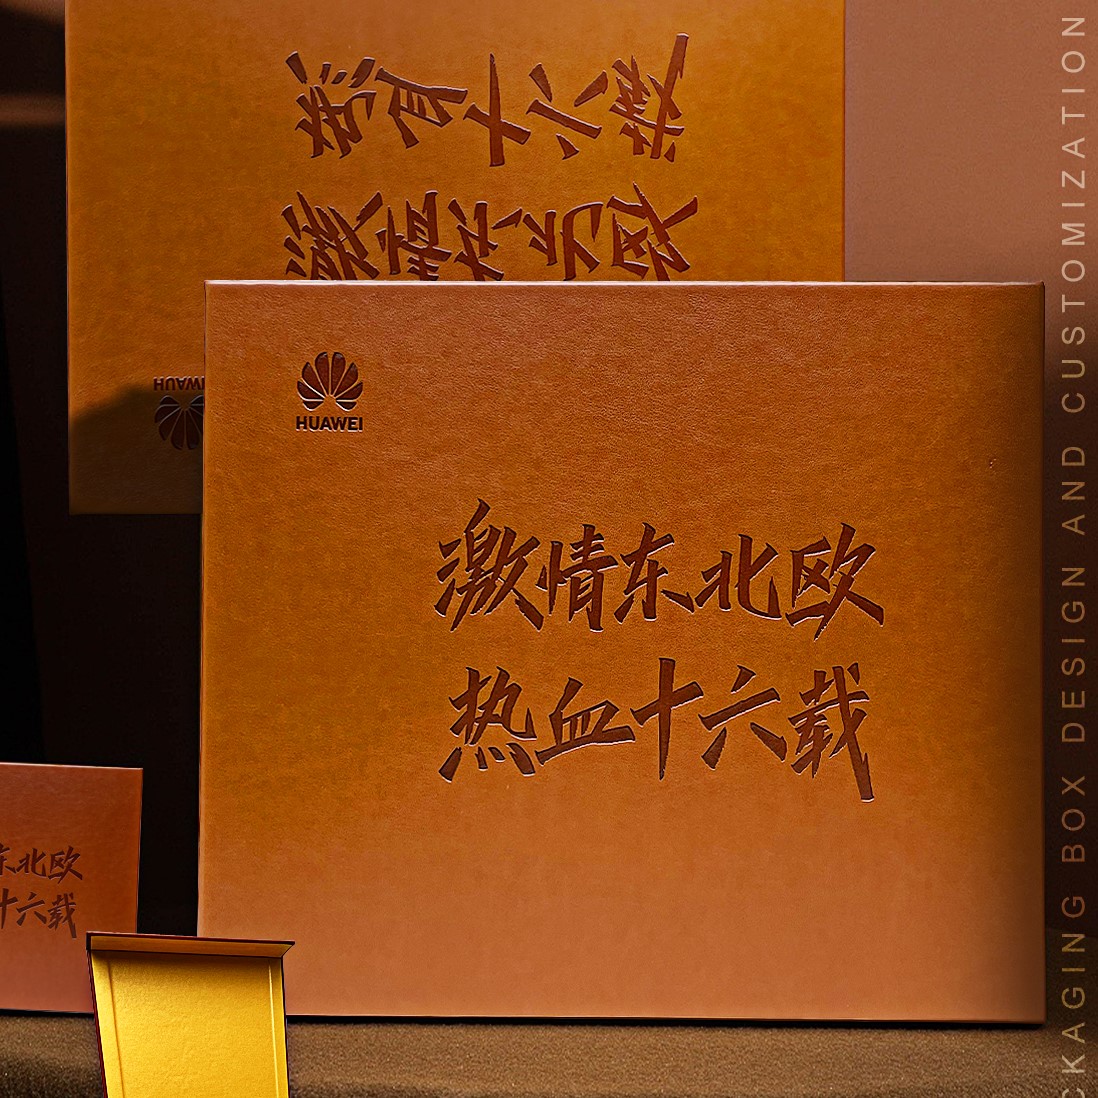 热血十六载
激情东北欧
HUAWEI
HUAWEI
激情东北欧
热血十六载
东北欧
十六载
CKAGING BOX DESIGN AND CUSTOMIZATION